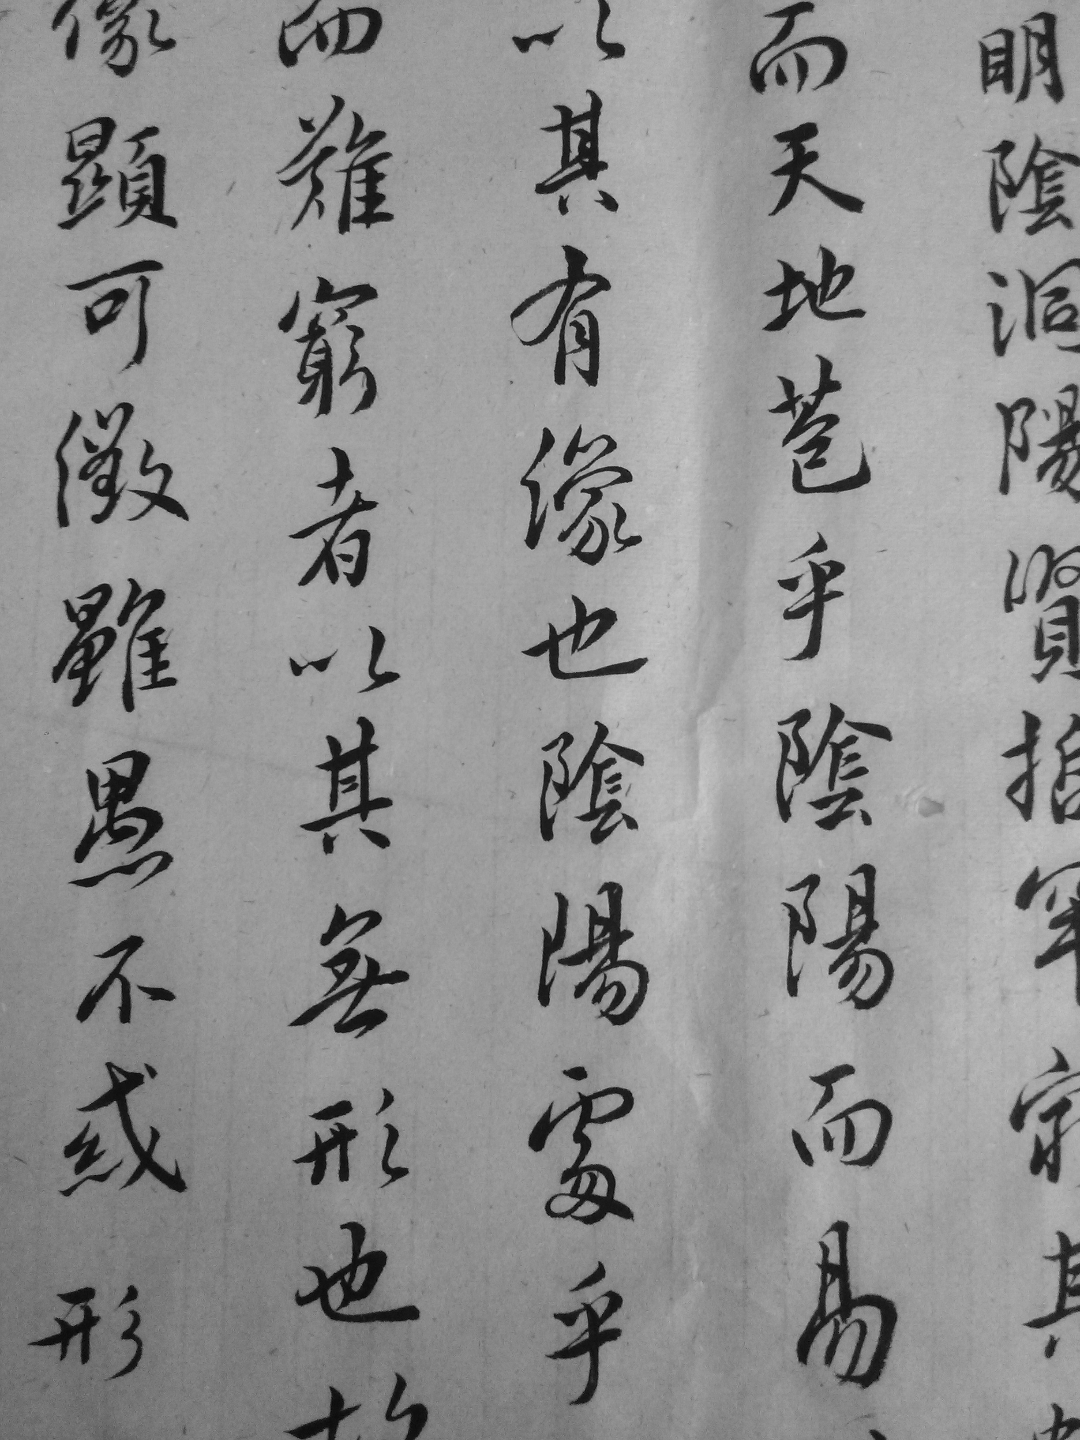 明陰洞陽賢哲罕窮其
而天地苞乎陰陽而易
以其有像也陰陽處乎
而難窮者以其無形也故
像顯可徵雖愚不惑形